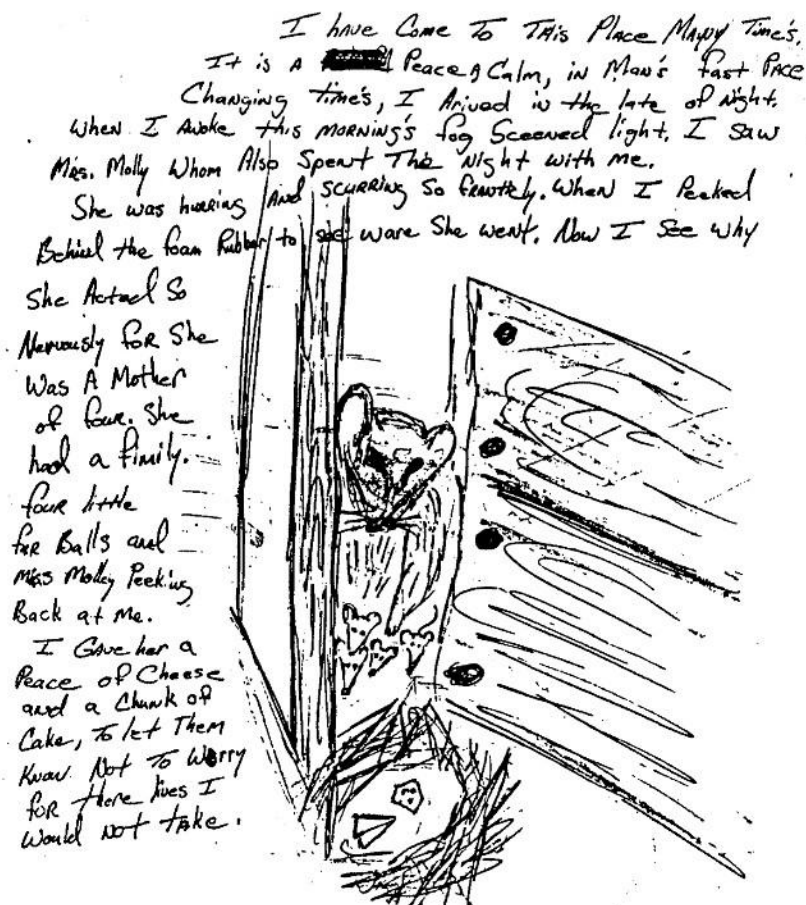 I have Come To This Place Mayny Time's,
It is A Peace & Calm, in Man's fast Pace
Changing Time's, I Arived in the late of Night.
When I Awoke this MORNING's fog Sceened light. I Saw
Mrs. Molly Whom Also Spent The Night with me.
She was hurring And SCURRING So franticly. When I Peeked
Behind the foam Rubber to see ware She went. Now I See why
She Acted So
Nervously for She
Was A Mother
of four. She
had a fimily.
four little
fur Balls and
Miss Molley Peeking
Back at Me.
I Gave her a
Peace of Cheese
and a Chunk of
Cake, To let Them
Know Not To Worry
for there lives I
Would Not take.